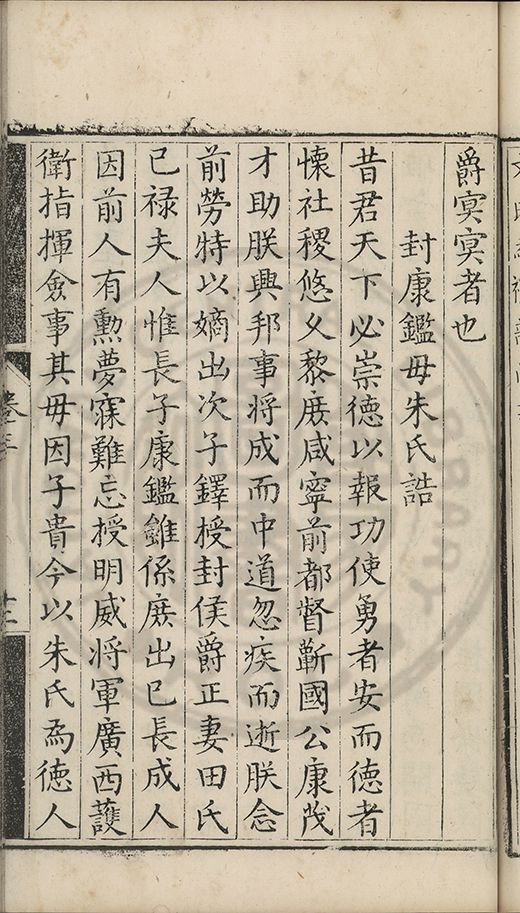 爵冥冥者也
封康鑑母朱氏誥
昔君天下必崇德以報功使勇者安而德者
懷社稷悠久黎庶咸寧前都督蘄國公康茂
才助朕興邦事将成而中道忽疾而逝朕念
前勞特以嫡出次子鐸授封侯爵正妻田氏
已禄夫人惟長子康鑑雖係庶出已長成人
因前人有勲夢寐難忘授明威将軍廣西護
衛指揮僉事其母因子貴今以朱氏為德人
卷三
十二